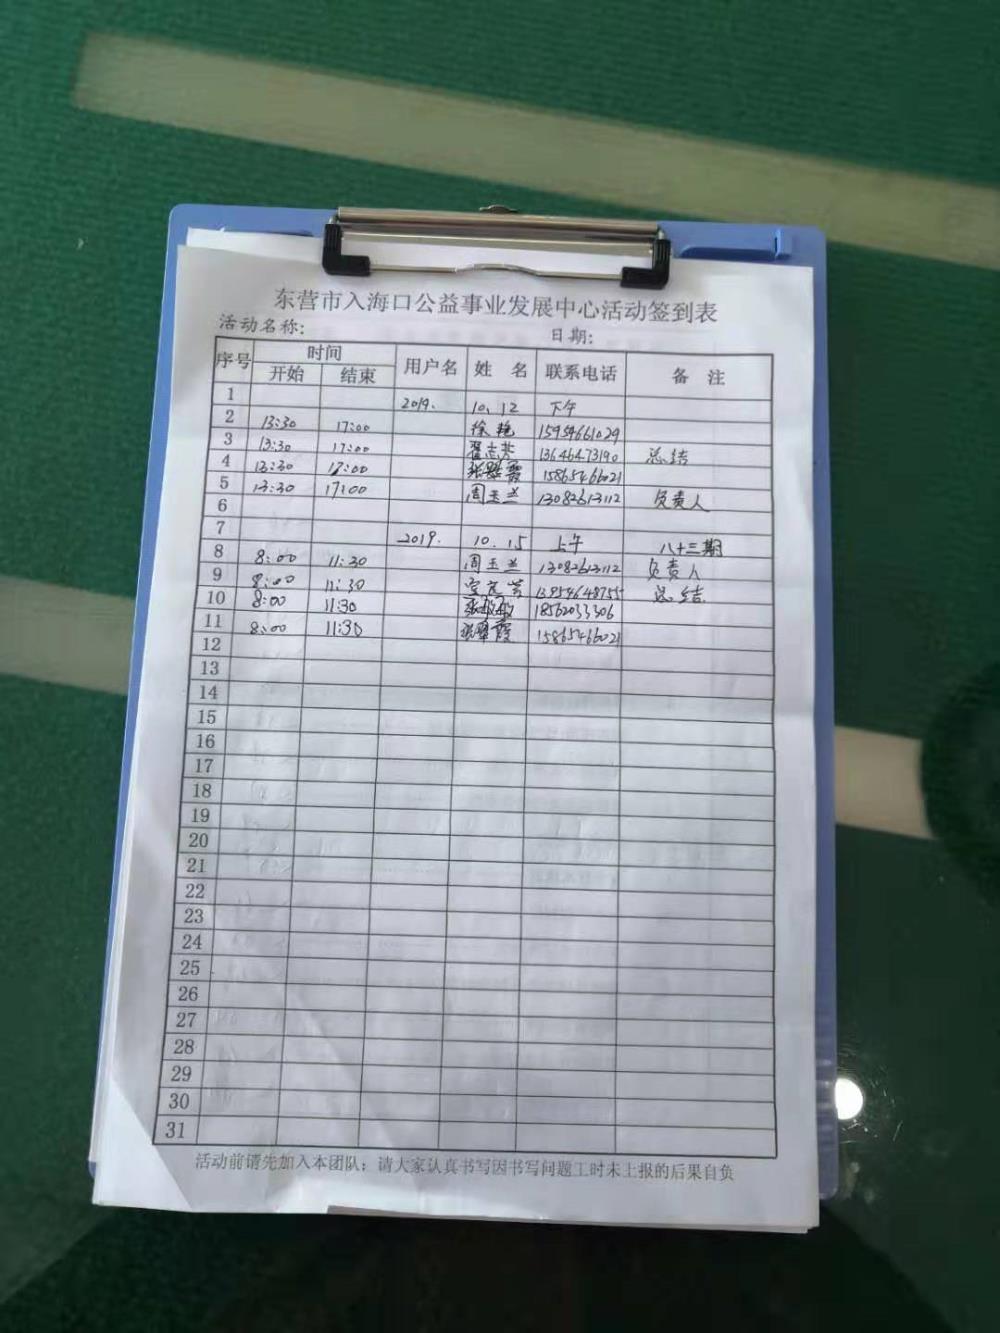 东营市入海口公益事业发展中心活动签到表
活动名称: 日期:
序号 时间 用户名 姓 名 联系电话 备 注
开始 结束
1 2019. 10.12 下午
2 13:30 17:00 徐艳 15954661029
3 13:30 17:00 翟志英 13646473190 总结
4 13:30 17:00 张翠霞 15865466021
5 13:30 17:00 周玉兰 13082613112 负责人
6
7 2019. 10.15 上午 八十三期
8 8:00 11:30 周玉兰 13082613112 负责人
9 8:00 11:30 13954648755 总结
10 8:00 11:30 张敏敏 18562033306
11 8:00 11:30 张翠霞 15865466021
12
13
14
15
16
17
18
19
20
21
22
23
24
25
26
27
28
29
30
31
活动前请先加入本团队;请大家认真书写因书写问题工时未上报的后果自负